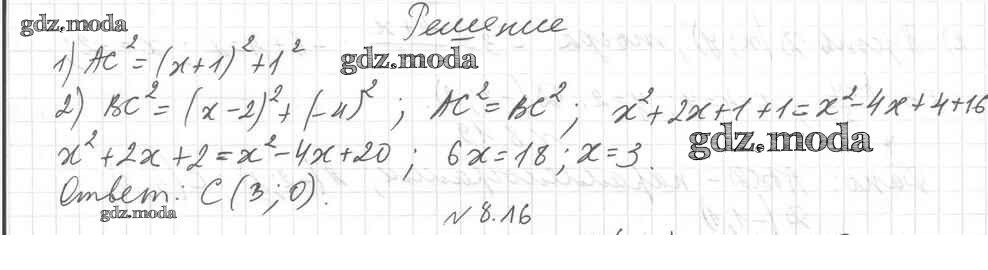 gdz.moda
Решение
1) AC² = (x+1)² + 1²
gdz.moda
2) BC² = (x-2)² + (-4)² ; AC² = BC² ; x² + 2x + 1 + 1 = x² - 4x + 4 + 16
gdz.moda
x² + 2x + 2 = x² - 4x + 20 ; 6x = 18 ; x = 3.
Ответ: C (3; 0).
gdz.moda
N 8.16